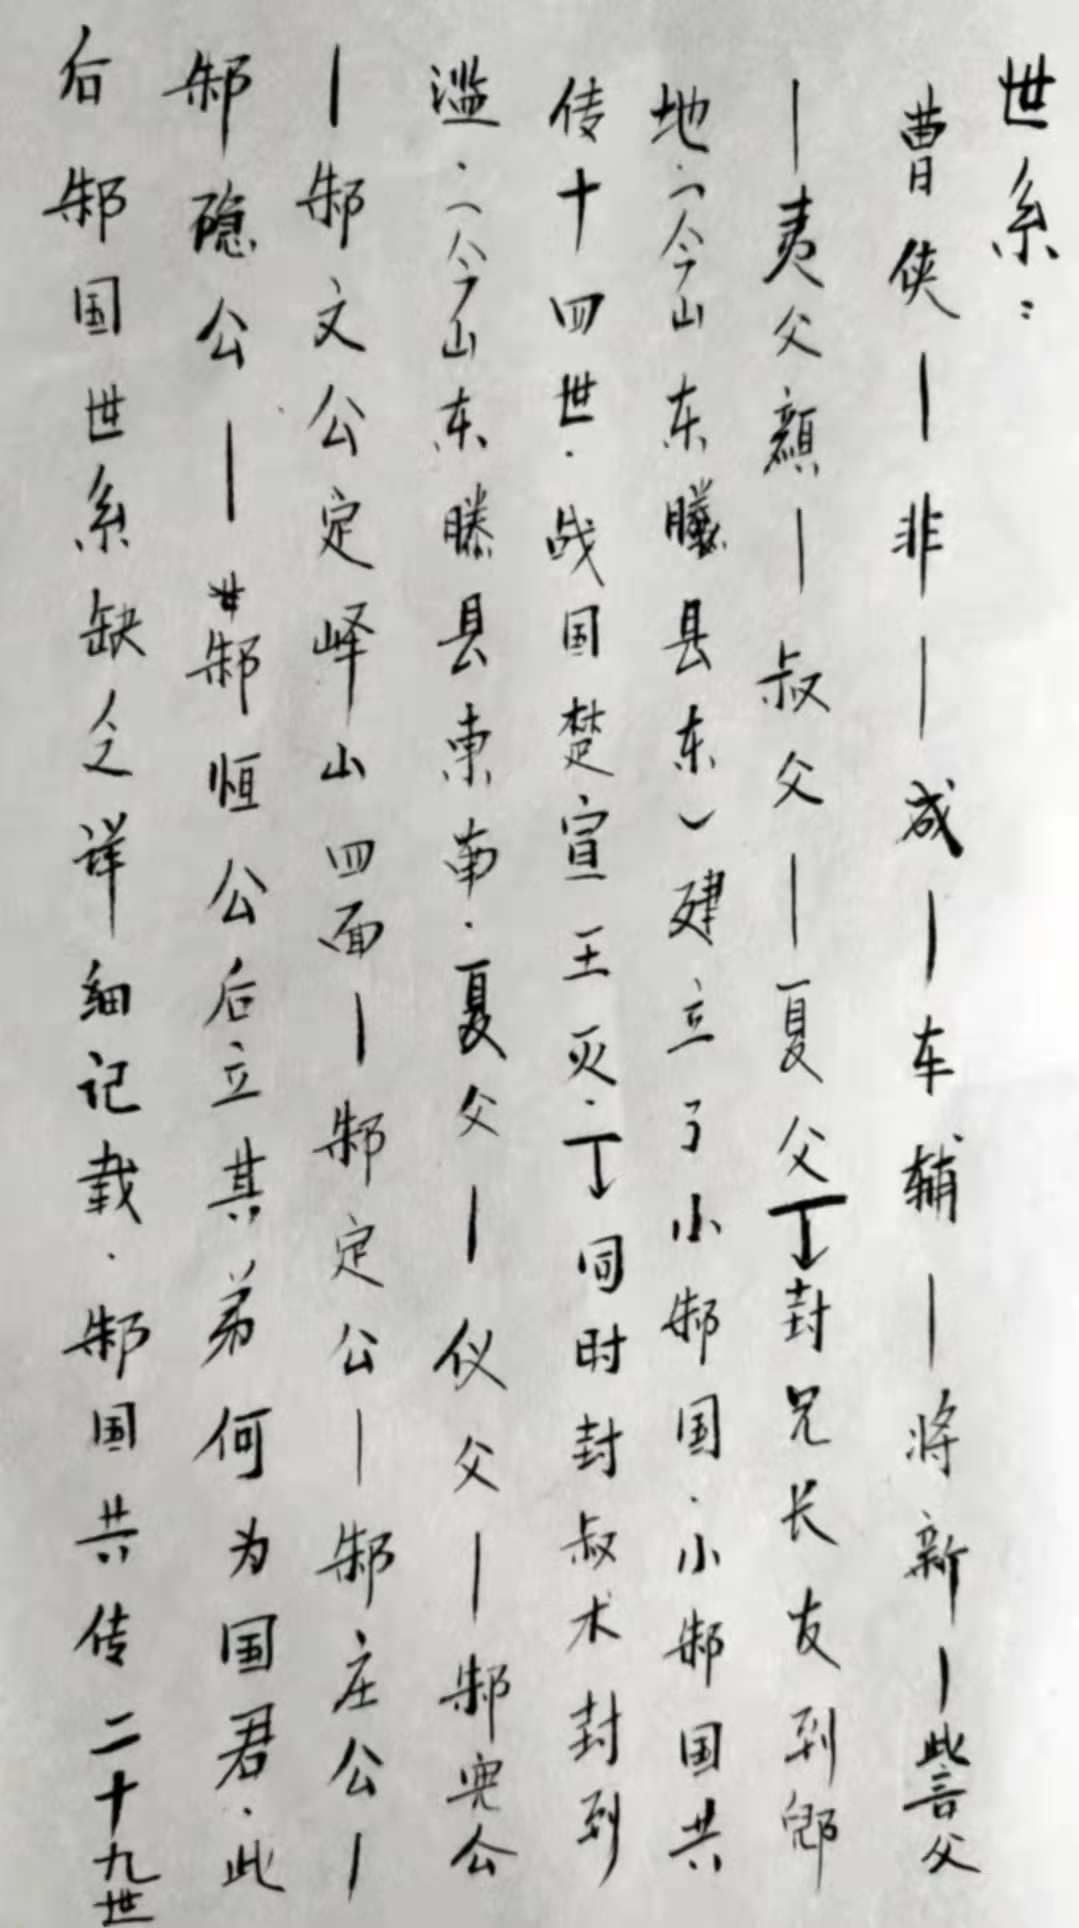 世系：
曹侠—非—成—车辅—将新—訾父
—夷父顏—叔父—夏父 封兄长友到郳
地.（今山东滕县东）建立了小邾国.小邾国共
传十四世.战国楚宣王灭. 同时封叔术封到
滥.（今山东滕县東南.夏父—仪父—邾 公
—邾文公定峄山四面—邾定公—邾庄公—
邾隐公—邾恒公后立其弟何为国君.此
后邾国世系缺乏详细记载.邾国共传二十九世